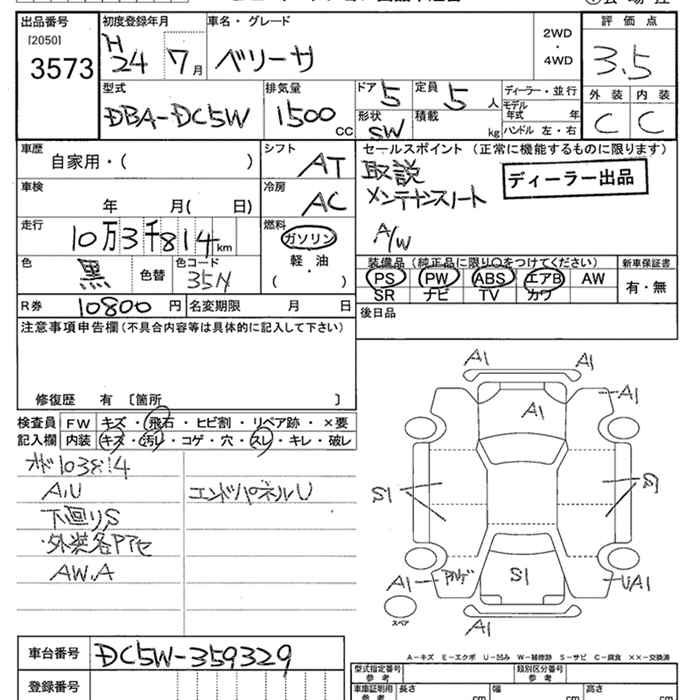 出品番号 初度登録年月 車名・グレード 評価点
[2050]
3573 H24 7月 ベリーサ 2WD・4WD 3.5
外装 内装
C C
型式 排気量 ドア 定員 ディーラー・並行
DBA-DC5W 1500cc 5 5人 モデル年式 年
形状 積載 kg ハンドル 左・右
SW
車歴 自家用・( ) シフト AT
セールスポイント (正常に機能するものに限ります)
取説
メンテナンスノート
ディーラー出品
A/W
車検 年 月( 日) 冷房 AC
走行 10万3千814km 燃料 ガソリン
軽・油
( )
色 黒 色替 色コード 35N
装備品 (純正品に限り○をつけてください) 新車保証書
PS PW ABS エアB AW 有・無
SR ナビ TV カワ
R券 10800円 名変期限 月 日
後日品
注意事項申告欄(不具合内容等は具体的に記入して下さい)
修復歴 有 〔箇所 〕
検査員 FW キズ・飛石・ヒビ割・リペア跡・×要
記入欄 内装 キズ・汚レ・コゲ・穴・スレ・キレ・破レ
103814
A,U エンドパネルU
下回り,S
AW.A
A1 A1
A1 A1
S1 S1
A1 S1 UA1
A1
スペア
A-キズ E-エクボ U-凹み W-補修跡 S-サビ C-腐食 ××-交換済
車台番号 DC5W-359329
型式指定番号 参考 類別区分番号 参考
登録番号
車庫証明用 参考 長さ cm 幅 cm 高さ cm